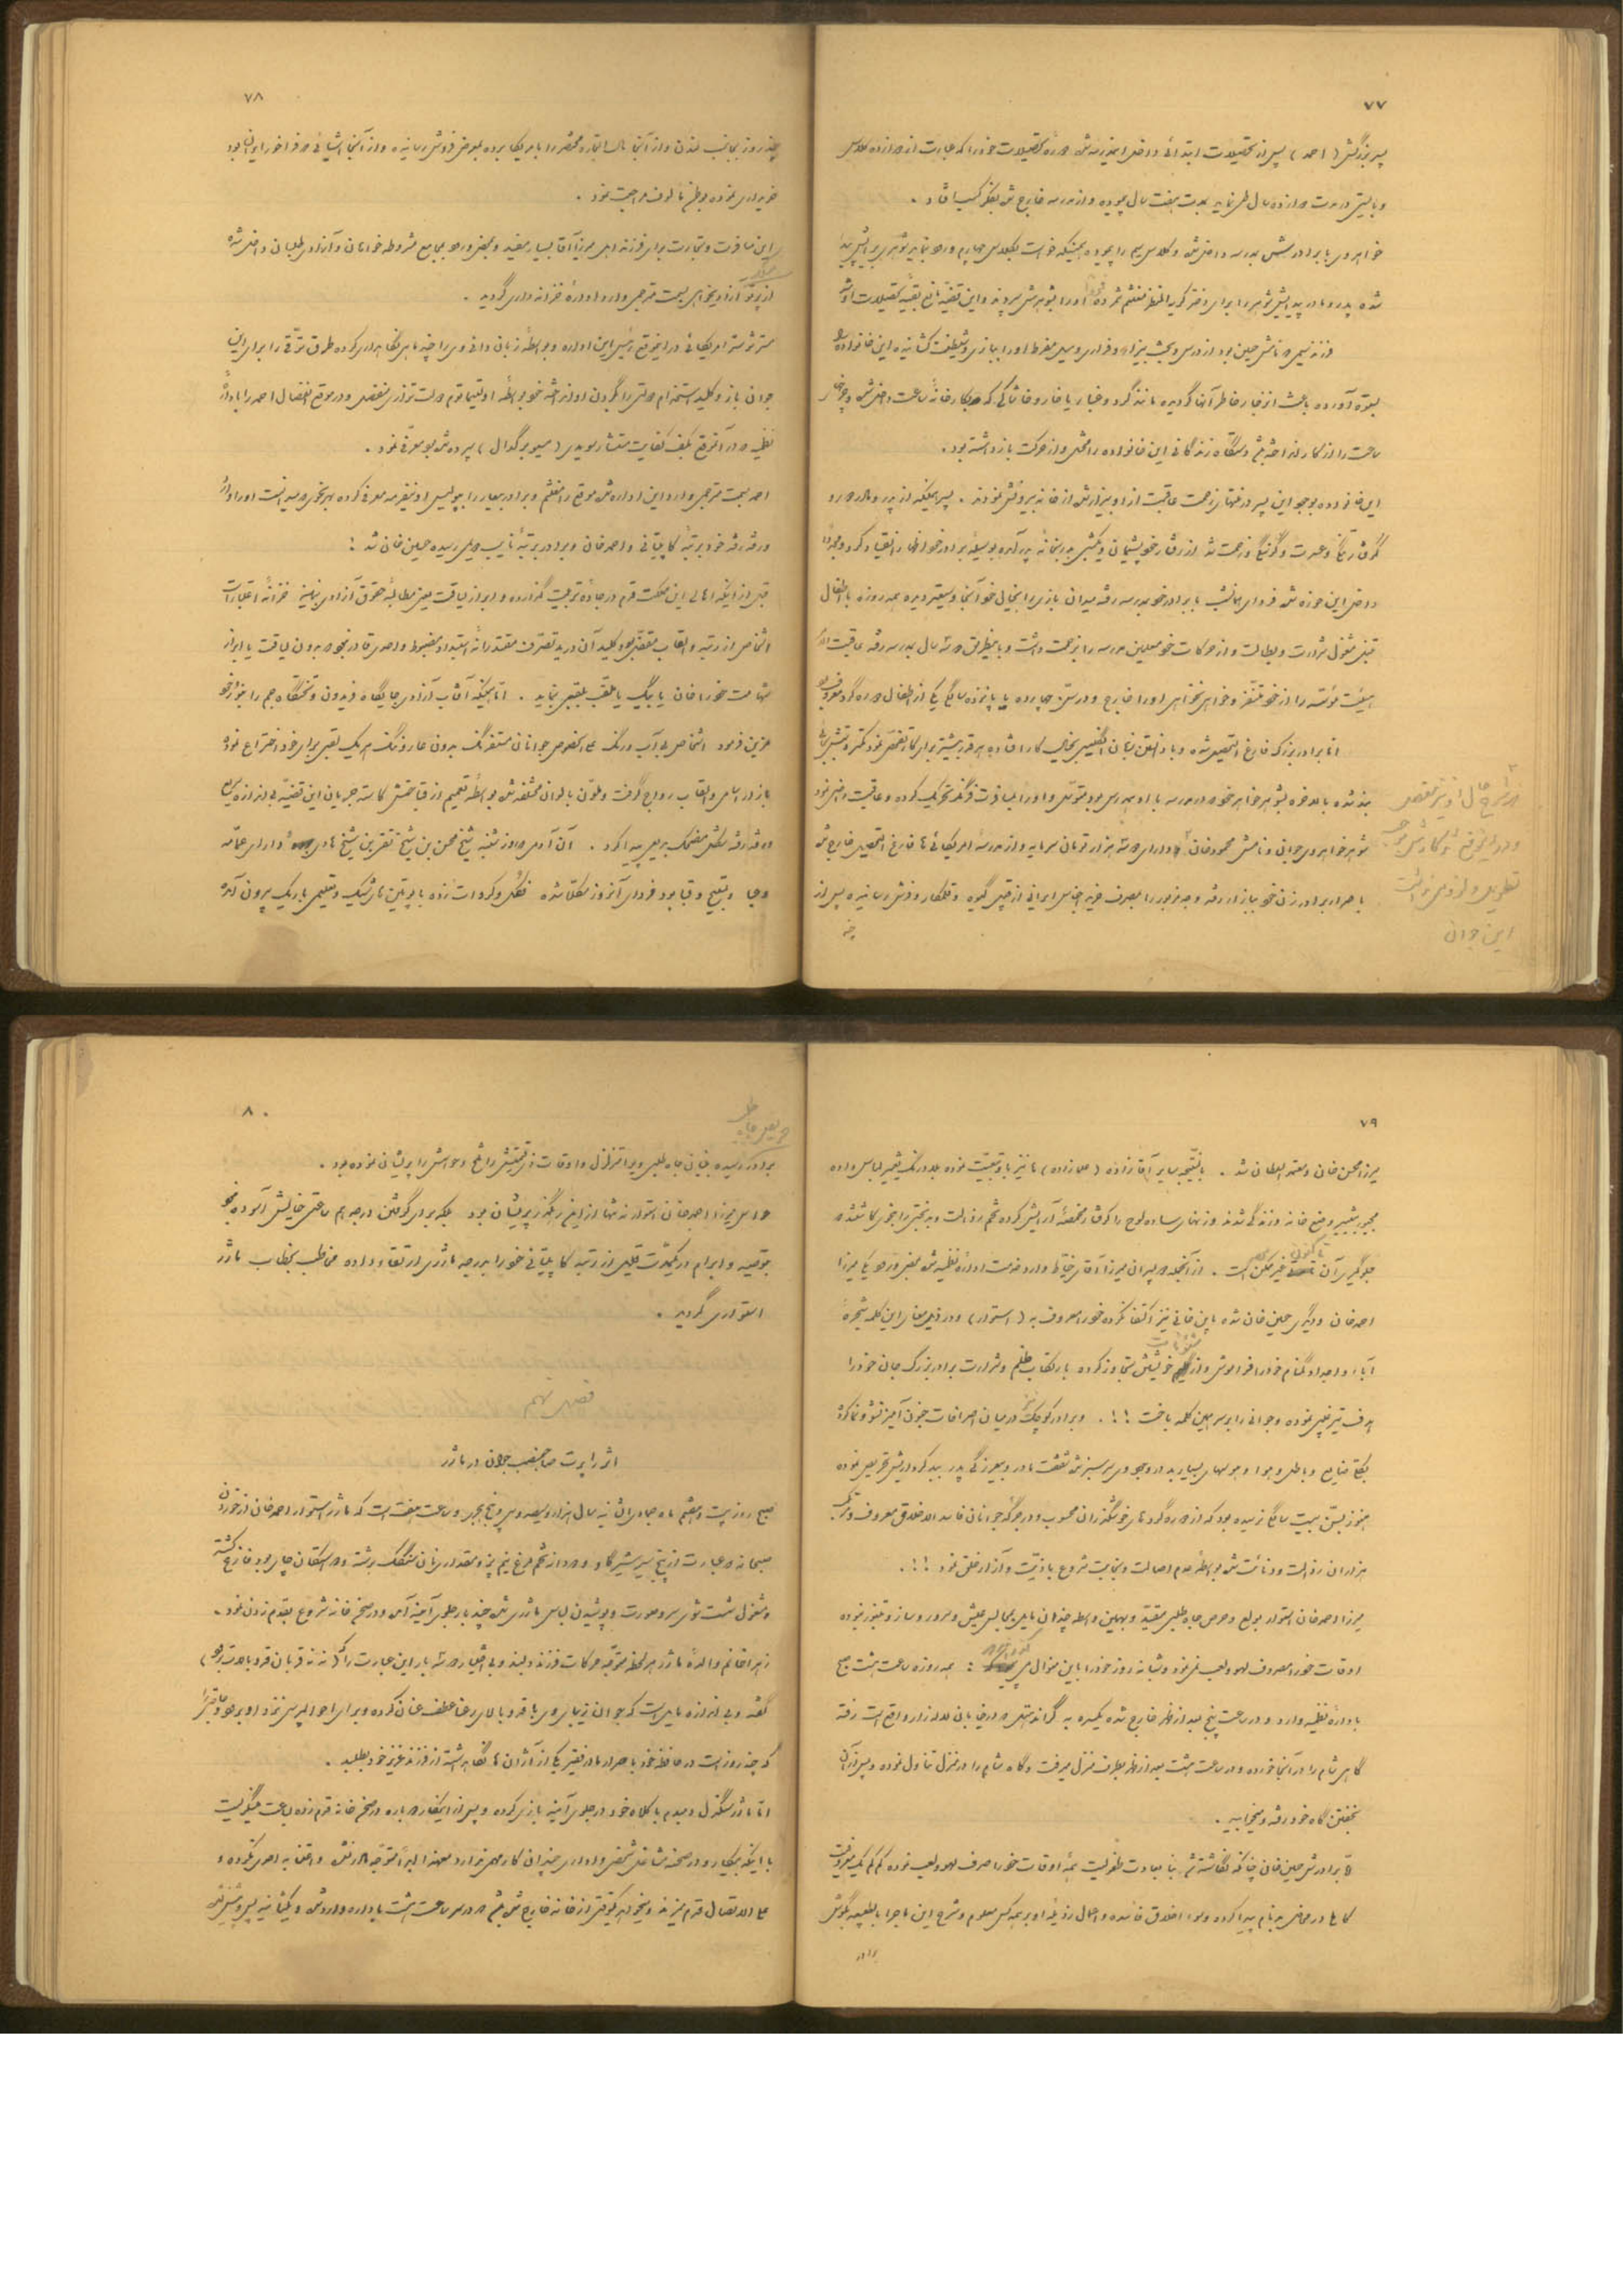 ۷۷
پسر بزرگش (احمد) پس از تحصیلات ابتدائی داخل مدرسه شده تحصیلات خود را که عبارت از دوازده کلاس
و بایستی در مدت دوازده سال طی نماید بمدت هفت سال پیموده و از مدرسه خارج شد بفکر کسب افتاد .
خواهر وی با برادرش بمدرسه داخل شده و کلاس سیم را پیموده همینکه خواست بکلاس چهارم ورود نماید شوهری برایش پیدا
شده پدر و مادر پیدایش شوهر را برای دختر مغتنم شمرده او را بشوهرش سپردند و این قضیه مانع بقیه تحصیلات او شد
فرزند سیمی که نامش حسین بود از درس و بحث بیزار و فراری و میل مفرط او را ببازی و شیطنت کشانیده این خانواده را
بستوه آورده باعث انزجار خاطر آنها گردیده مانند گرد و غبار یا خار و خاشاکی که بکارخانه ساعت داخل شده و چرخهای
ساعت را از کار انداخته باشد دستگاه زندگانی این خانواده را مختل و از حرکت بازداشته بود .
این خانواده بوجود این پسر در منتهای زحمت عاقبت از او بیزار شده از خانه بیرونش نمودند . پسر همینکه از پدر و مادر دور و
گرفتار تنگی و عسرت و گرسنگی و زحمت شد از رفتار خود پشیمان و گشته بدرخانه پدر آمده بوسیله برادر خود اظهار انقیاد کرد و مجدداً
داخل این حوزه شد فردای همانشب با برادر خود بمدرسه رفته میدان بازی را بخیال خود آنجا وسیعتر دیده همه روزه با اطفال
قبلی مشغول شرارت و بطالت و از حرکات خود معلمین مدرسه را بزحمت داشت و باینطریق دو سه سال بمدرسه رفته عاقبت الامر
هیئت مؤسسه را از خود متنفر و خواهی نخواهی او را خارج و در سن چهارده یا پانزده سالگی یکی از اطفال دوره گرد معروف بود
اما برادر بزرگ فارغ التحصیل شده و با دانستن زبان انگلیسی بخیال کار افتاده هر قدر بیشتر برای کار تفحص نمود کمتر
شده بالاخره بشوهر خواهر خود که در مدرسه با او همدرس بود متوسل و او را بمسافرت فرنگ تحریک کرده و عاقبت راضی نمود
شوهر خواهر وی جوانی و نامش محمود خان دارای دو سه هزار تومان سرمایه و از مدرسه امریکائی ها فارغ التحصیل خارج شده
با اصرار برادر زن خود ببازار رفته وجه مزبور را بمصرف خرید اجناس ایرانی از قبیل گیوه و قلمکار و فرش رسانیده پس از
شرح حال او نیز مفصل
تطویل و لزومی نداشت
این جوان
چند
۷۸
چند روز بجانب لندن و از آنجا مال التجاره مختصر را بامریکا برده بمعرض فروش رسانیده و از آنجا اشیائی که فراخور ایران بود
خریداری نموده بوطن مألوف مراجعت نمود .
این مسافرت و تجارت برای فرزند اول میرزا آقا بسیار مفید و بمحض ورود بمجامع مشروطه خواهان و آزادی طلبان داخل شده
از پرتو آزادیخواهی بسمت مترجمی وارد اداره خزانه داری گردید .
مستر شوستر امریکائی در اینموقع رئیس این اداره و بواسطه زبان دانی وی را چند ماهی نگاهداری کرده طرق ترقی را برای این
جوان باز و کلید استخدام دولتی را بگردن او انداخته خود بواسطه اولتیماتوم دولت تزاری منفصل و در موقع انفصال احمد را باداره
نظمیه که در آنموقع بکف کفایت مستشار سویدی (مسیو برگدال) سپرده شده بود معرفی نمود .
احمد بسمت مترجمی وارد این اداره شده موقع را مغتنم و برادر بیعار را پلیس اونیفرمه معرفی کرده بهر نحوی که میدانست او را وارد
و رفته رفته خود برتبه کاپیتانی و احمد خان و برادر برتبه نایب دویمی رسیده حسین خان شد !
قبل از آنکه اهالی این مملکت قدم در جاده تربیت گذارده و ابراز لیاقت یعنی مطالبه حقوق آزادی نمایند خزانه اعتبارات
اشخاص از رتبه و القاب مقفل بود و کلید آن در ید تصرف مقتدرانه استبداد مضبوط و احدی قادر نبود بدون لیاقت یا ابراز
شهامت خود را خان یا بیگ یا ملقب بلقبی نماید . اما همینکه آفتاب آزادی جایگاه فریدون و تختگاه جم را بنور خود
مزین فرمود اشخاص بی آب و رنگ علی الخصوص جوانان مستفرنگ بدون عار و ننگ هر یک لقبی برای خود اختراع نموده
بازار اسامی و القاب رواج گرفت و ملون بالوان مختلفه شده بواسطه تعمیم از قباحتش کاسته جریان این قضیه بی اندازه سریع
و رفته رفته شکل مضحک بدیعی پیدا کرد . آن آدمی که روز شنبه شیخ محسن بن شیخ تقی بن شیخ هادی و دارای عمامه
و عبا و تسبیح و قبا بود فردای آنروز مکلا شده فکل و کراوات زده با پوتین های شیک و تعلیمی باریک بیرون آمده
۷۹
میرزا محسن خان و معتمد السلطان شد . بالنتیجه سایر آقازاده (علمازاده) ها نیز باو تبعیت نموده بلادرنگ تغییر لباس داده
مجبور بتغییر وضع خانه و زندگی شدند و زنهای ساده لوح را گرفتار مخمصه آرایش کرده تخم رذالت و بدبختی را بنحوی کاشتند که
جلوگیری آن تاکنون غیر ممکن است . از آنجمله دو پسران میرزا آقای خیاط وارد خدمت اداره نظمیه شده بمحض ورود یکی میرزا
احمد خان و دیگری حسین خان شده باین خانی نیز اکتفا نکرده خود را معروف به (استوار) و در ذیل معانی این کلمه شجره
آباء و اجداد گمنام خود را فراموش و از خویشتن تجاوز کرده بارتکاب ظلم و شرارت برادر بزرگ جان خود را
هدف تیر غیبی نموده و جوانی را بر سر همین کلمه باخت !!. و برادر کوچک در میان اصرافات جنون آمیز نشو و نما کرده
بکلی ضایع و باطل و هوا و هوسهای بسیار بد در وجود وی سرسبز شده شفقت مادر و بیعرزگی پدر ببد کرداریش تحریص نموده
هنوز بسن بیست سالگی نرسیده بود که از دوره گرد های خوشگذران محسوب و در جرگه جوانان فاسد الاخلاق معروف و
هزاران رذالت و دنائت شد بواسطه عدم اصالت و نجابت شروع باذیت و آزار خلق نمود !!.
میرزا احمد خان استوار بولع و حرص جاه طلبی مقید و بهمین واسطه چندان مایل بمجالس عیش و سرور و ساز و تنبور نبوده
اوقات خود را مصروف لهو و لعب نمی نمود و شبانه روز خود را باین منوال می : همه روزه ساعت هشت صبح
باداره نظمیه وارد و در ساعت پنج بعد از ظهر خارج شده یکسره به گراند هتل که در خیابان لاله زار واقع است رفته
گاهی شام را در آنجا خورده و در ساعت هشت بعد از ظهر بطرف منزل میرفت و گاه شام را در منزل تناول نموده و پس از آن
بخفتن گاه خود رفته و میخوابید .
و برادرش حسین خان چنانکه نگاشته شد بنا بعادت طفولیت همه اوقات خود را صرف لهو و لعب نموده کم کم یک معروفیت
کاملا در محافل بدنام پیدا کرده و سوء اخلاق فاسده و اعمال رذیله او بر همه کس معلوم و شرح این ماجرا بالطبیعه بگوش
برادر
۸۰
حریص جاه طلب
برادر رسیده بنیان جاه طلبی ویرا متزلزل و اوقات ذیقیمتش را تلخ و حواسش را پریشان نموده بود .
حواس میرزا احمد خان استوار نه تنها از این رهگذر پریشان بود بلکه برای گرفتن درجه هم ساعتی خیالش آسوده نبود
بتوصیه و ابرام در یکمدت قلیلی از رتبه کاپیتانی خود را بدرجه ماژری ارتقاء داده مخاطب بخطاب ماژر
استواری گردید .
فصل نهم
اثر راپرت صاحبمنصب جوان در ماژر
صبح روز بیست و هفتم ماه جمادی الثانیه سال هزار و سیصد و سی و پنج هجری و ساعت هفت است که ماژر استوار احمد خان از خوردن
صبحانه که عبارت از پنج سیر شیر گاو و دو دانه تخم مرغ نیم پز و مقداری نان خشک برشته و دو استکان چای بود فارغ گشته
و مشغول شست شوی سر و صورت و پوشیدن لباس ماژری شده چند بار جلوی آینه آمد و در صحن خانه شروع بقدم زدن نمود .
زهرا خانم والده ماژر هر لحظه متوجه حرکات فرزند دلبند و بی اختیار دو سه بار این عبارت را (ننه قربان قد و بالات بره)
گفته و بی اندازه مایل است که جوان زیبای وی با قد و بالای رعنا عطف عنان کرده و برای احوالپرسی نزد او برود
که چند روز است در محافظه خود با اصرار مادر فقیر یکی از آژان ها نگاهداشته از فرزند عزیز خود بطلبد .
اما ماژر سنگدل دمبدم با کلاه خود در جلوی آینه بازی کرده و پس از اینکار دوباره در صحن خانه قدم زده بساعت مینگریست
با اینکه بیکار و در صحنه مشاغل شخصی و اداری چندان کار مهمی ندارد معهذا ابداً متوجه مادر نشده و اعتنا به احدی نکرده و
علی الاتصال قدم میزند و میخواهد یکوقتی از خانه خارج شده باشد که در سر ساعت هشت باداره وارد شود